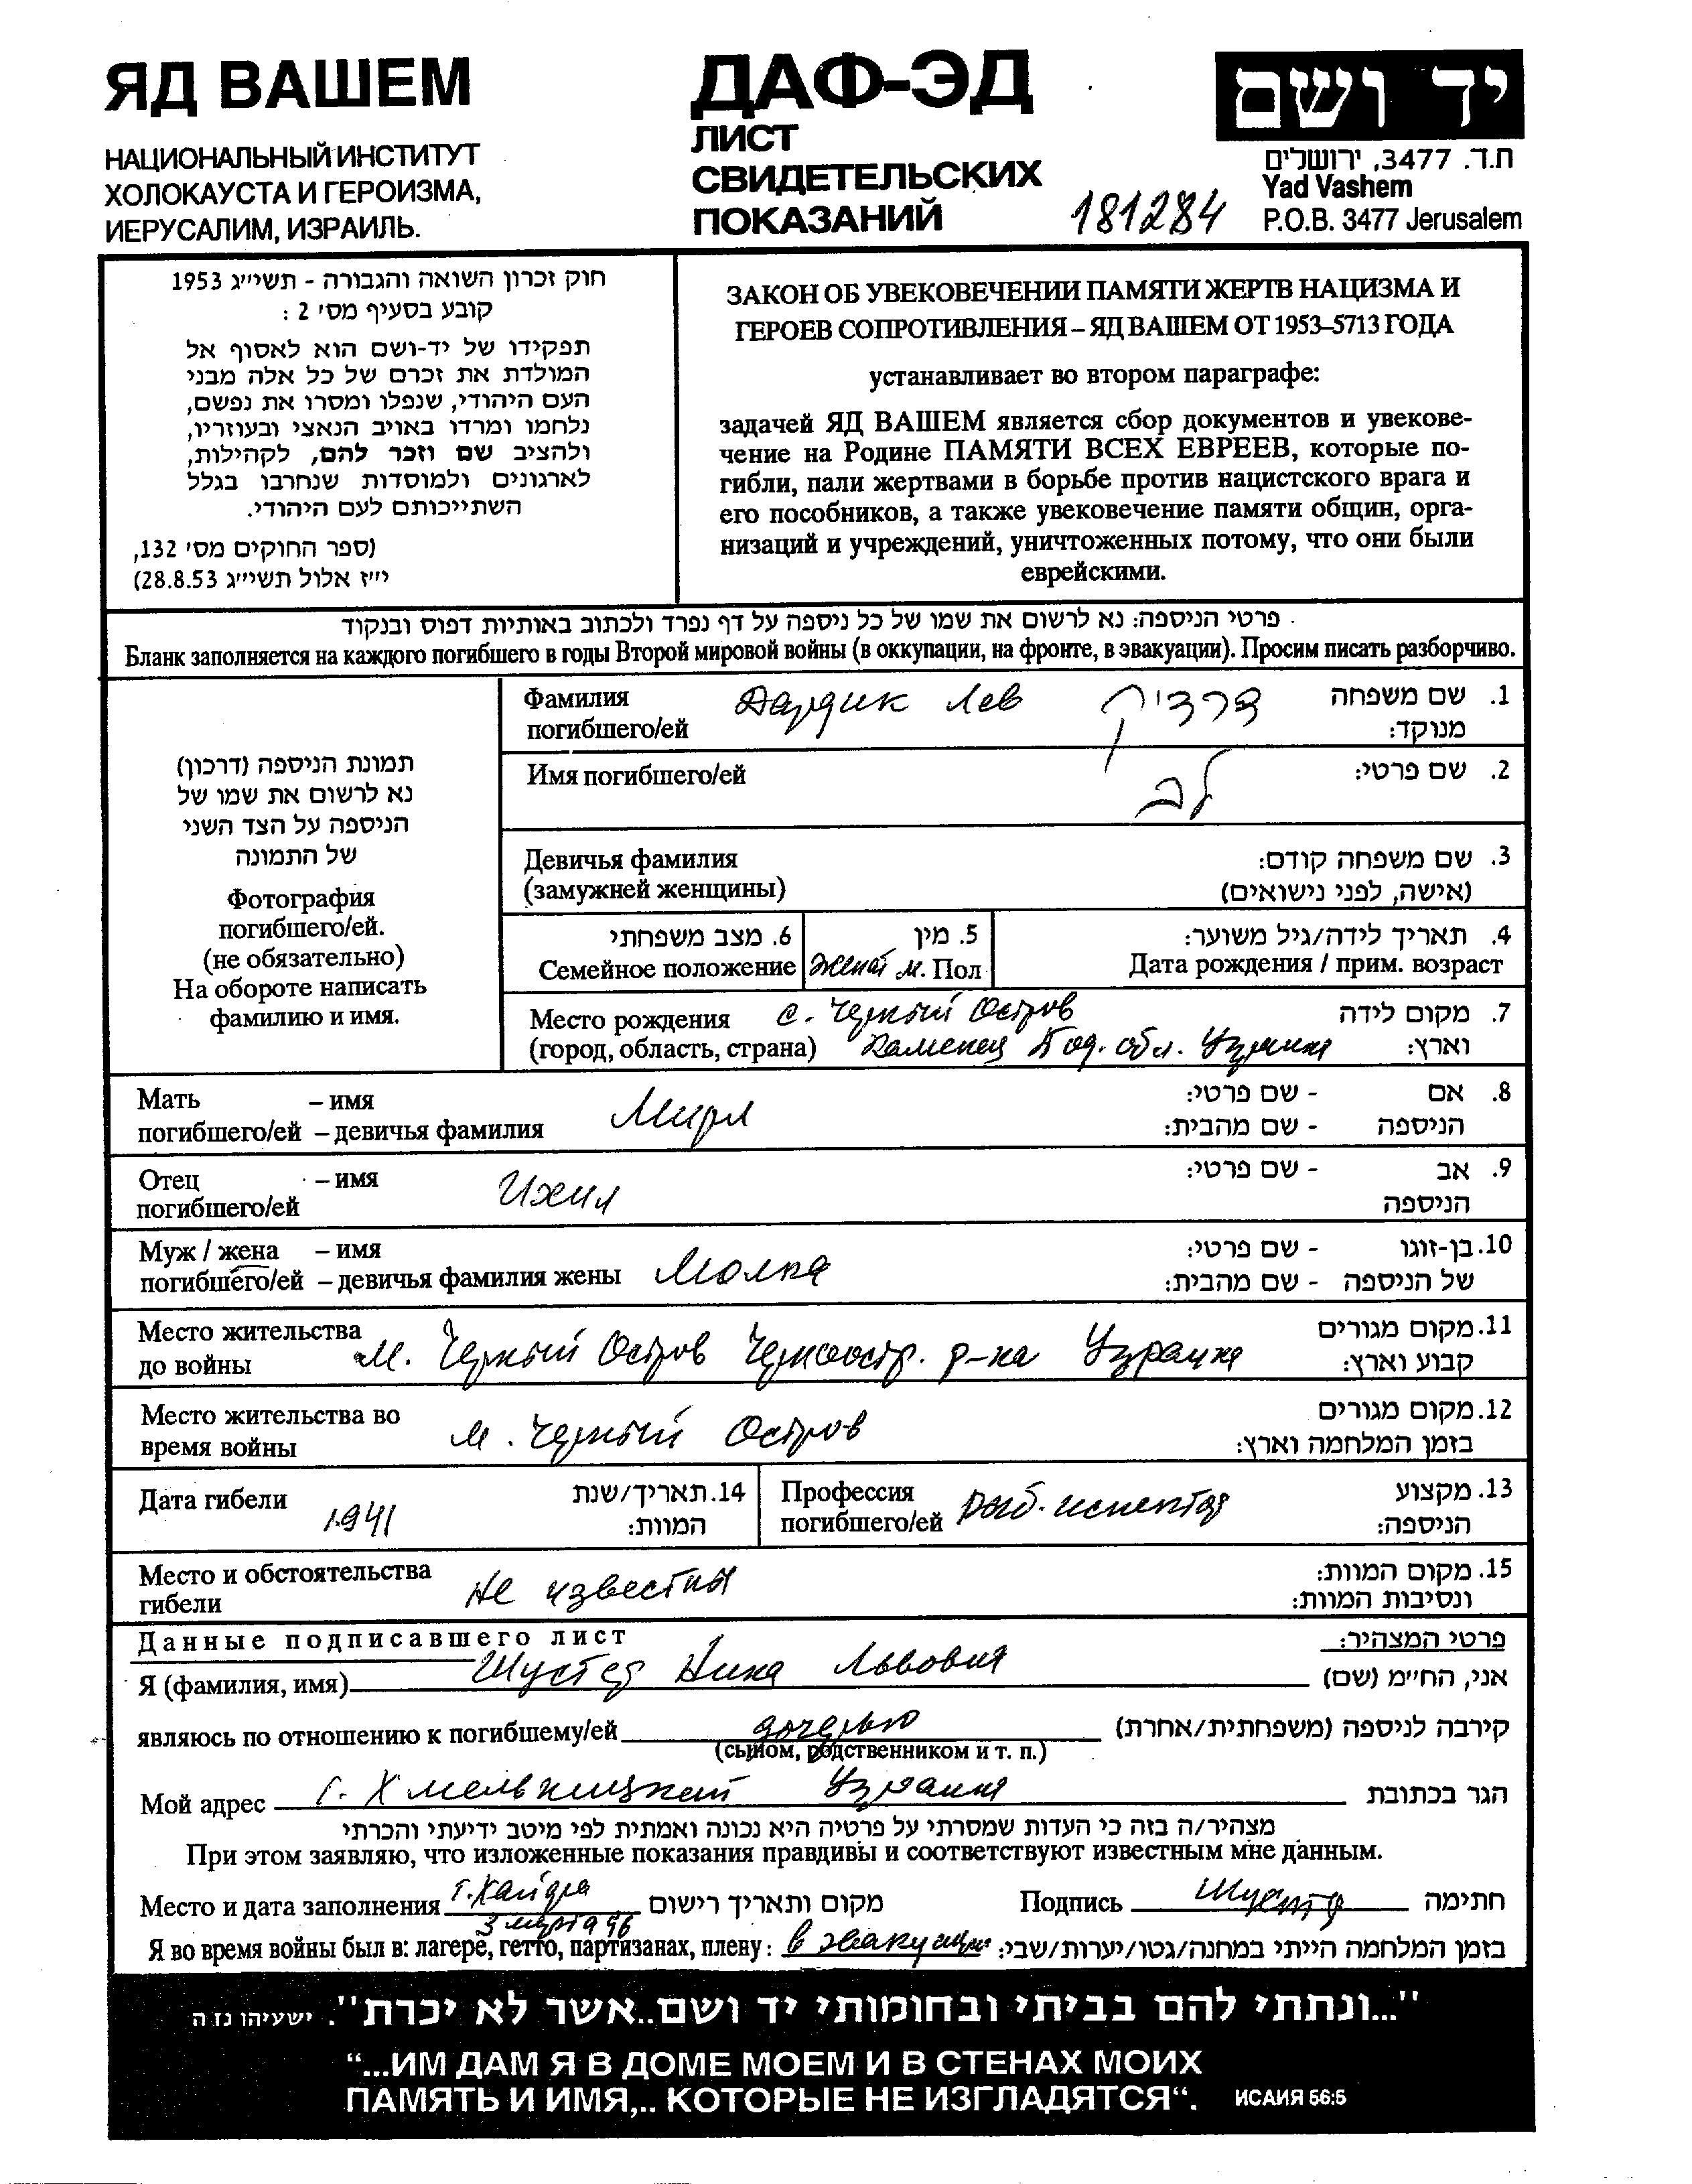 ЯД ВАШЕМ
НАЦИОНАЛЬНЫЙ ИНСТИТУТ
ХОЛОКАУСТА И ГЕРОИЗМА,
ИЕРУСАЛИМ, ИЗРАИЛЬ.
ДАФ-ЭД
ЛИСТ
СВИДЕТЕЛЬСКИХ
ПОКАЗАНИЙ
181284
יד ושם
ת.ד. 3477, ירושלים
Yad Vashem
P.O.B. 3477 Jerusalem
חוק זכרון השואה והגבורה - תשי״ג 1953
קובע בסעיף מס׳ 2 :
תפקידו של יד-ושם הוא לאסוף אל
המולדת את זכרם של כל אלה מבני
העם היהודי, שנפלו ומסרו את נפשם,
נלחמו ומרדו באויב הנאצי ובעוזריו,
ולהציב שם וזכר להם, לקהילות,
לארגונים ולמוסדות שנחרבו בגלל
השתייכותם לעם היהודי.
(ספר החוקים מס׳ 132,
י״ז אלול תשי״ג 28.8.53)
ЗАКОН ОБ УВЕКОВЕЧЕНИИ ПАМЯТИ ЖЕРТВ НАЦИЗМА И
ГЕРОЕВ СОПРОТИВЛЕНИЯ – ЯД ВАШЕМ ОТ 1953–5713 ГОДА
устанавливает во втором параграфе:
задачей ЯД ВАШЕМ является сбор документов и увекове-
чение на Родине ПАМЯТИ ВСЕХ ЕВРЕЕВ, которые по-
гибли, пали жертвами в борьбе против нацистского врага и
его пособников, а также увековечение памяти общин, орга-
низаций и учреждений, уничтоженных потому, что они были
еврейскими.
פרטי הניספה: נא לרשום את שמו של כל ניספה על דף נפרד ולכתוב באותיות דפוס ובנקוד
Бланк заполняется на каждого погибшего в годы Второй мировой войны (в оккупации, на фронте, в эвакуации). Просим писать разборчиво.
תמונת הניספה (דרכון)
נא לרשום את שמו של
הניספה על הצד השני
של התמונה
Фотография
погибшего/ей.
(не обязательно)
На обороте написать
фамилию и имя.
Фамилия Дардик Лев דרדיק 1. שם משפחה
погибшего/ей מנוקד:
Имя погибшего/ей לב 2. שם פרטי:
Девичья фамилия 3. שם משפחה קודם:
(замужней женщины) (אישה, לפני נישואים)
6. מצב משפחתי 5. מין 4. תאריך לידה/גיל משוער:
Семейное положение женат м. Пол Дата рождения / прим. возраст
Место рождения с. Черный Остров 7. מקום לידה
(город, область, страна) Каменец Под. обл. Украина וארץ:
Мать – имя Мирл 8. אם - שם פרטי:
погибшего/ей – девичья фамилия הניספה - שם מהבית:
Отец – имя Ихил 9. אב - שם פרטי:
погибшего/ей הניספה
Муж / жена – имя 10. בן-זוגו - שם פרטי:
погибшего/ей – девичья фамилия жены Молка של הניספה - שם מהבית:
Место жительства 11. מקום מגורים
до войны м. Черный Остров Черноостр. р-на Украина קבוע וארץ:
Место жительства во 12. מקום מגורים
время войны м. Черный Остров בזמן המלחמה וארץ:
Дата гибели 1941 14. תאריך/שנת
המוות:
Профессия 13. מקצוע
погибшего/ей הניספה:
Место и обстоятельства 15. מקום המוות:
гибели не известны ונסיבות המוות:
Данные подписавшего лист פרטי המצהיר:
Я (фамилия, имя) Шустер Нина Львовна אני, החי״מ (שם)
являюсь по отношению к погибшему/ей дочерью קירבה לניספה (משפחתית/אחרת)
(сыном, родственником и т. п.)
Мой адрес г. Хмельницкий Украина הגר בכתובת
מצהיר/ה בזה כי העדות שמסרתי על פרטיה היא נכונה ואמתית לפי מיטב ידיעתי והכרתי
При этом заявляю, что изложенные показания правдивы и соответствуют известным мне данным.
Место и дата заполнения г. Хайфа מקום ותאריך רישום Подпись Шустер חתימה
3 марта 96
Я во время войны был в: лагере, гетто, партизанах, плену: в эвакуации בזמן המלחמה הייתי במחנה/גטו/יערות/שבי:
"...ונתתי להם בביתי ובחומותי יד ושם..אשר לא יכרת". ישעיהו נז ה
“...ИМ ДАМ Я В ДОМЕ МОЕМ И В СТЕНАХ МОИХ
ПАМЯТЬ И ИМЯ,.. КОТОРЫЕ НЕ ИЗГЛАДЯТСЯ“. ИСАИЯ 56:5